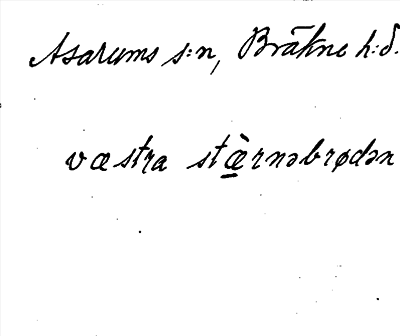 Asarums s:n, Bräkne h:d.
væstra stæ̠̀rnəbrødən